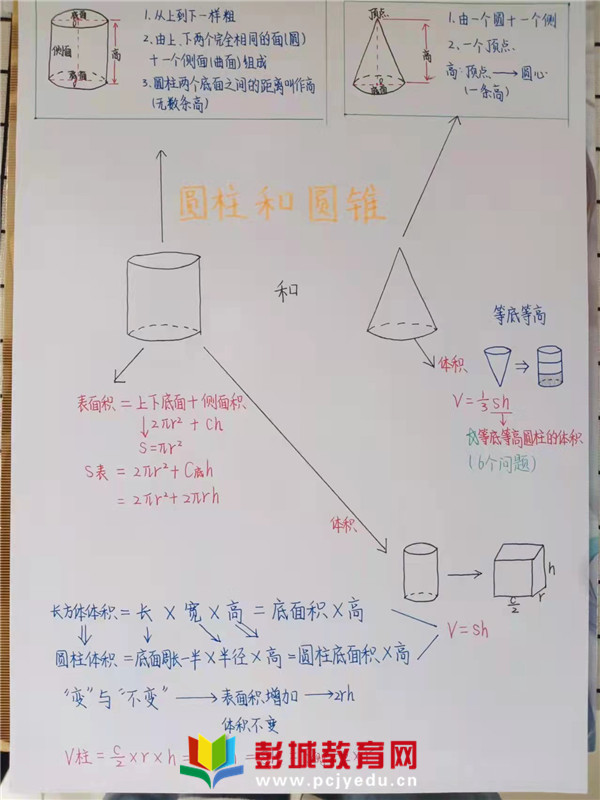 底面
侧面
高
底面
1. 从上到下一样粗
2. 由上、下两个完全相同的面(圆)
十一个侧面(曲面)组成
3. 圆柱两个底面之间的距离叫作高
(无数条高)
顶点
高
底面
1. 由一个圆十一个侧
2. 一个顶点.
高:顶点→圆心
(一条高)
圆柱和圆锥
和
等底等高
体积
V=1/3 sh
等底等高圆柱的体积
(6个问题)
表面积=上下底面+侧面积
2πr²+Ch
S=πr²
S表=2πr²+C底h
=2πr²+2πrh
体积
h
r
c/2
长方体体积=长×宽×高=底面积×高
V=sh
圆柱体积=底面周长一半×半径×高=圆柱底面积×高
"变"与"不变"→表面积增加→2rh
体积不变
V柱=c/2×r×h=
彭城教育网
www.pcjyedu.cn